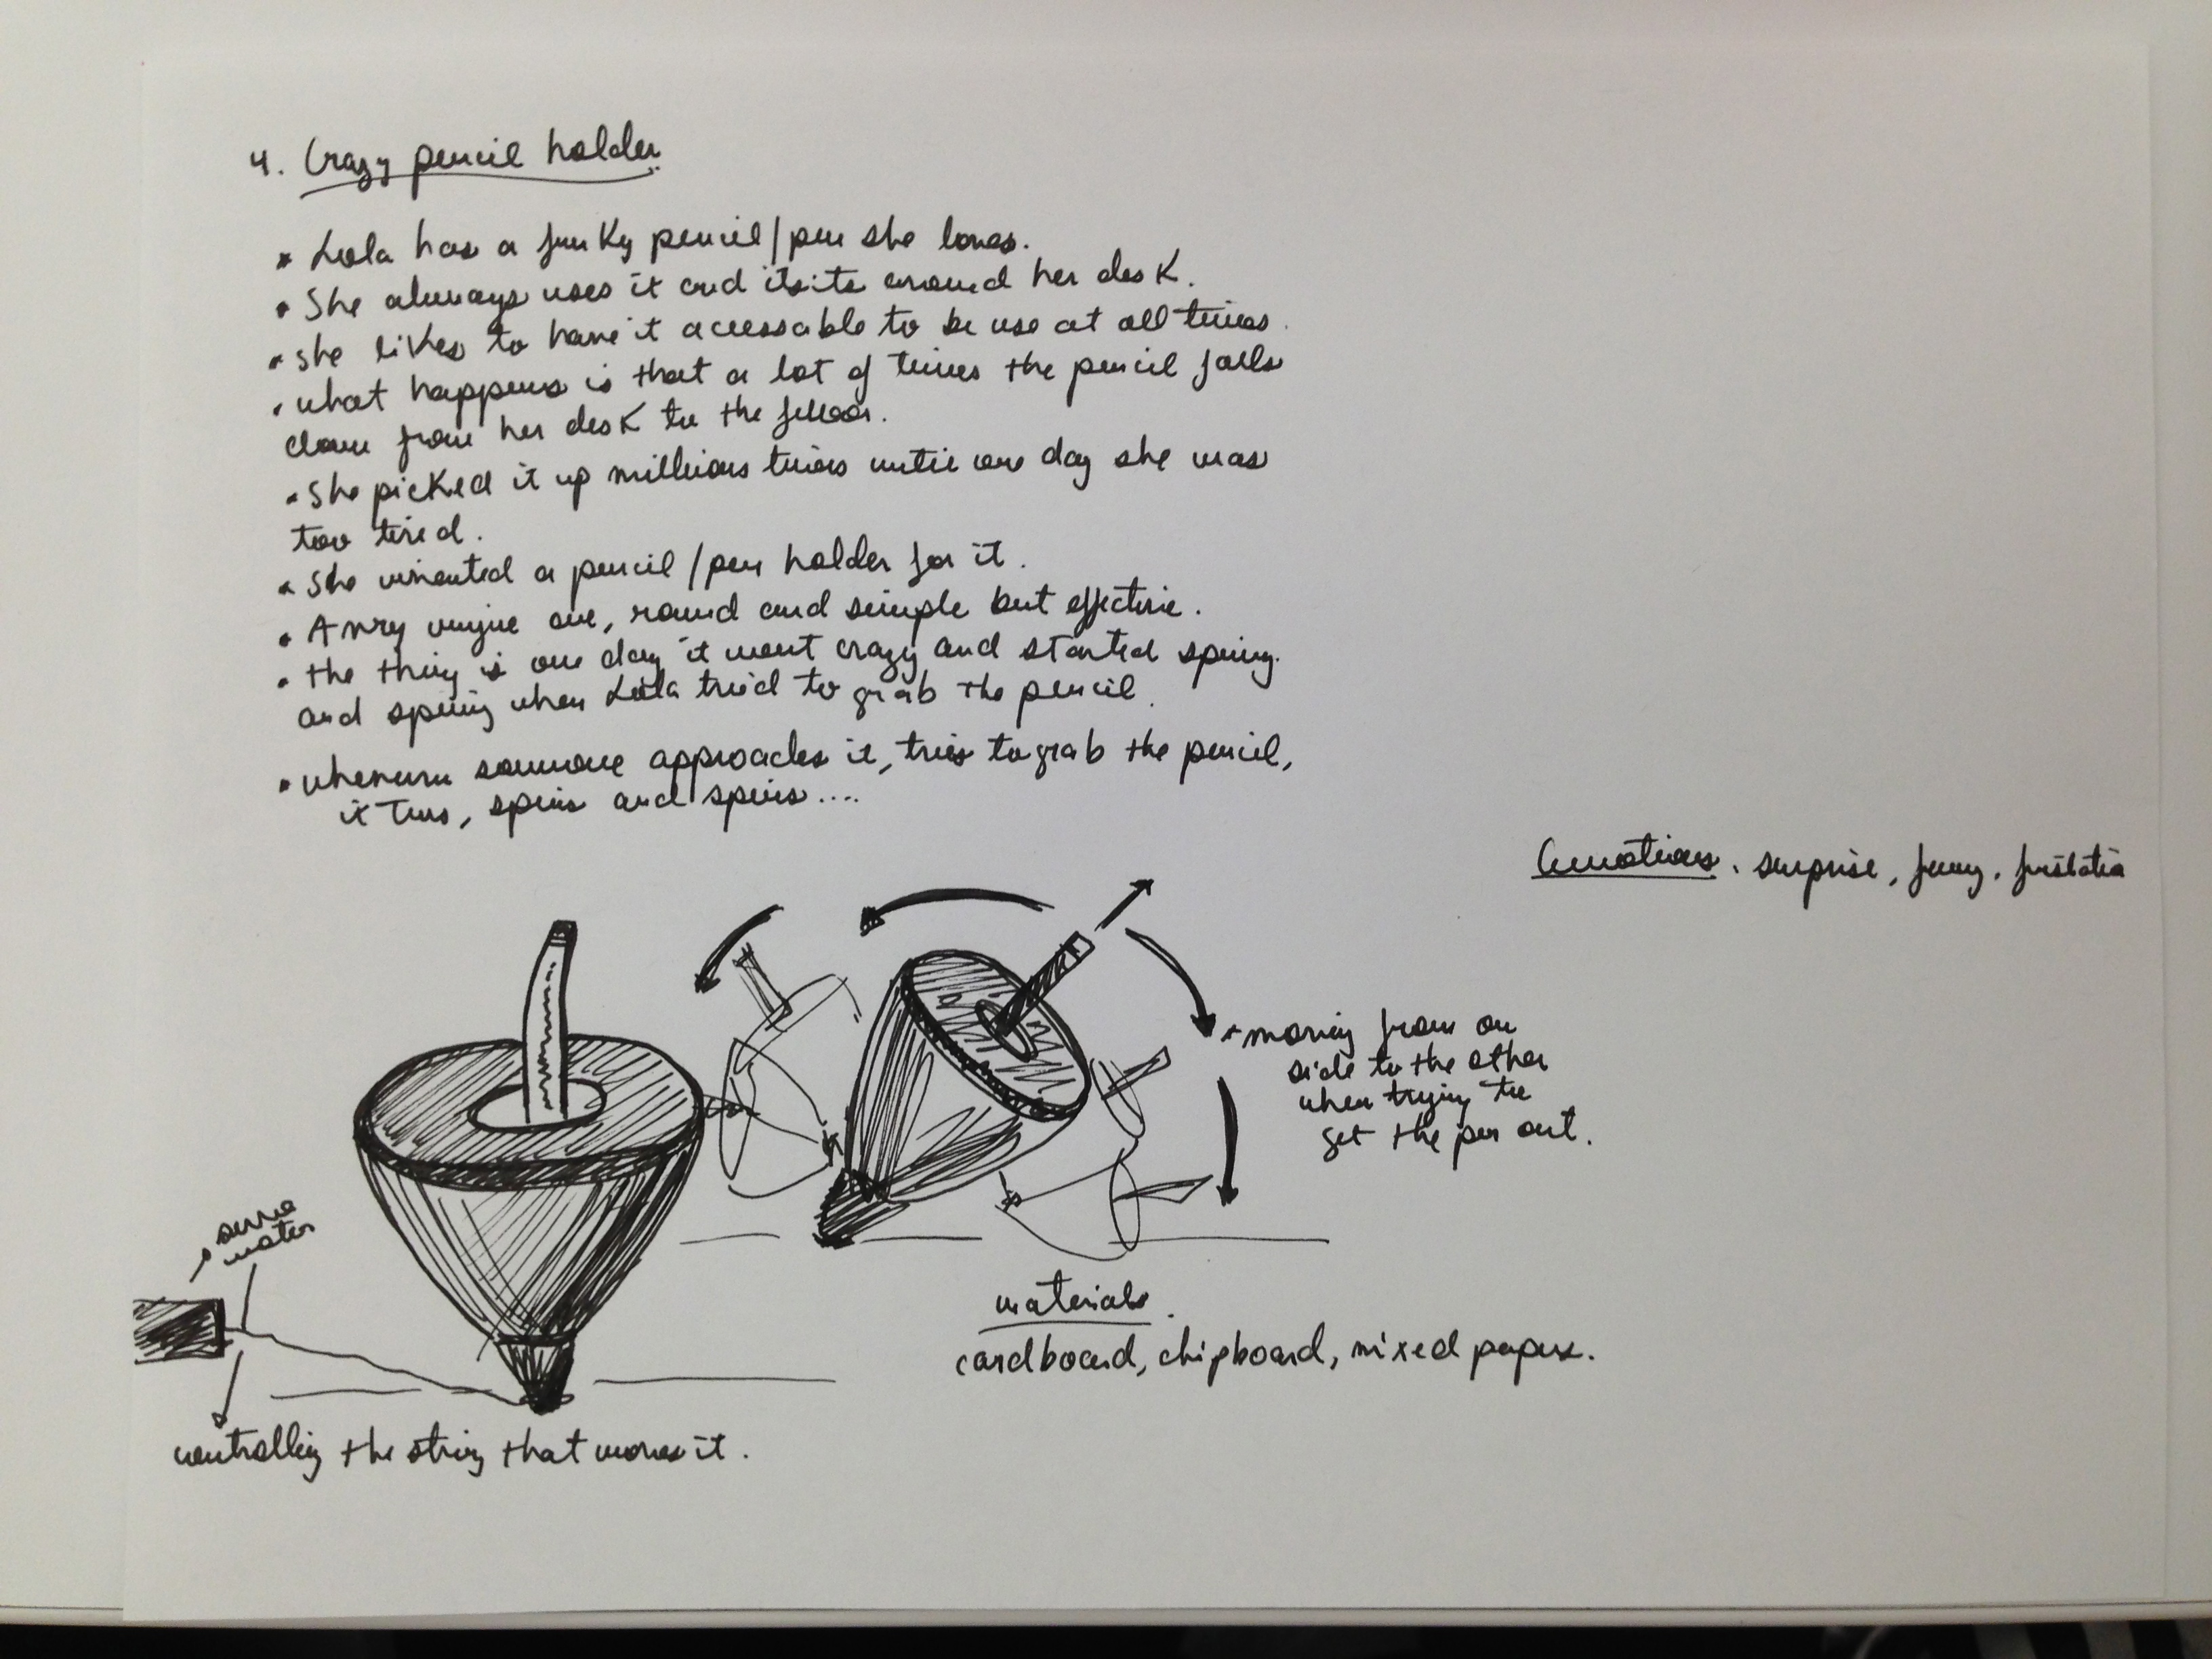 4. Crazy pencil holder
• Lola has a funky pencil/pen she loves.
• She always uses it and it sits around her desk.
• she likes to have it accessable to be use at all times.
• what happens is that a lot of times the pencil falls
down from her desk to the floor.
• She picked it up millions times until one day she was
too tired.
• She invented a pencil/pen holder for it.
• A very unique one, round and simple but effective.
• the thing is one day it went crazy and started spining
and spining when Lola tried to grab the pencil.
• whenever someone approaches it, tries to grab the pencil,
it turns, spins and spins....
Emotions. surprise, funny,
• moving from one
side to the other
when trying to
get the pen out.
servo
motor
materials.
cardboard, chipboard, mixed papers.
controlling the string that moves it.